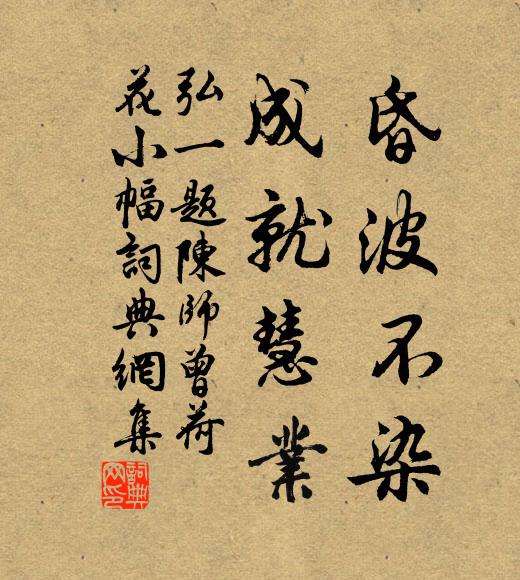 昏波不染
成就慧業
弘一題陳師曾荷
花小幅詞典網集
詞典網印